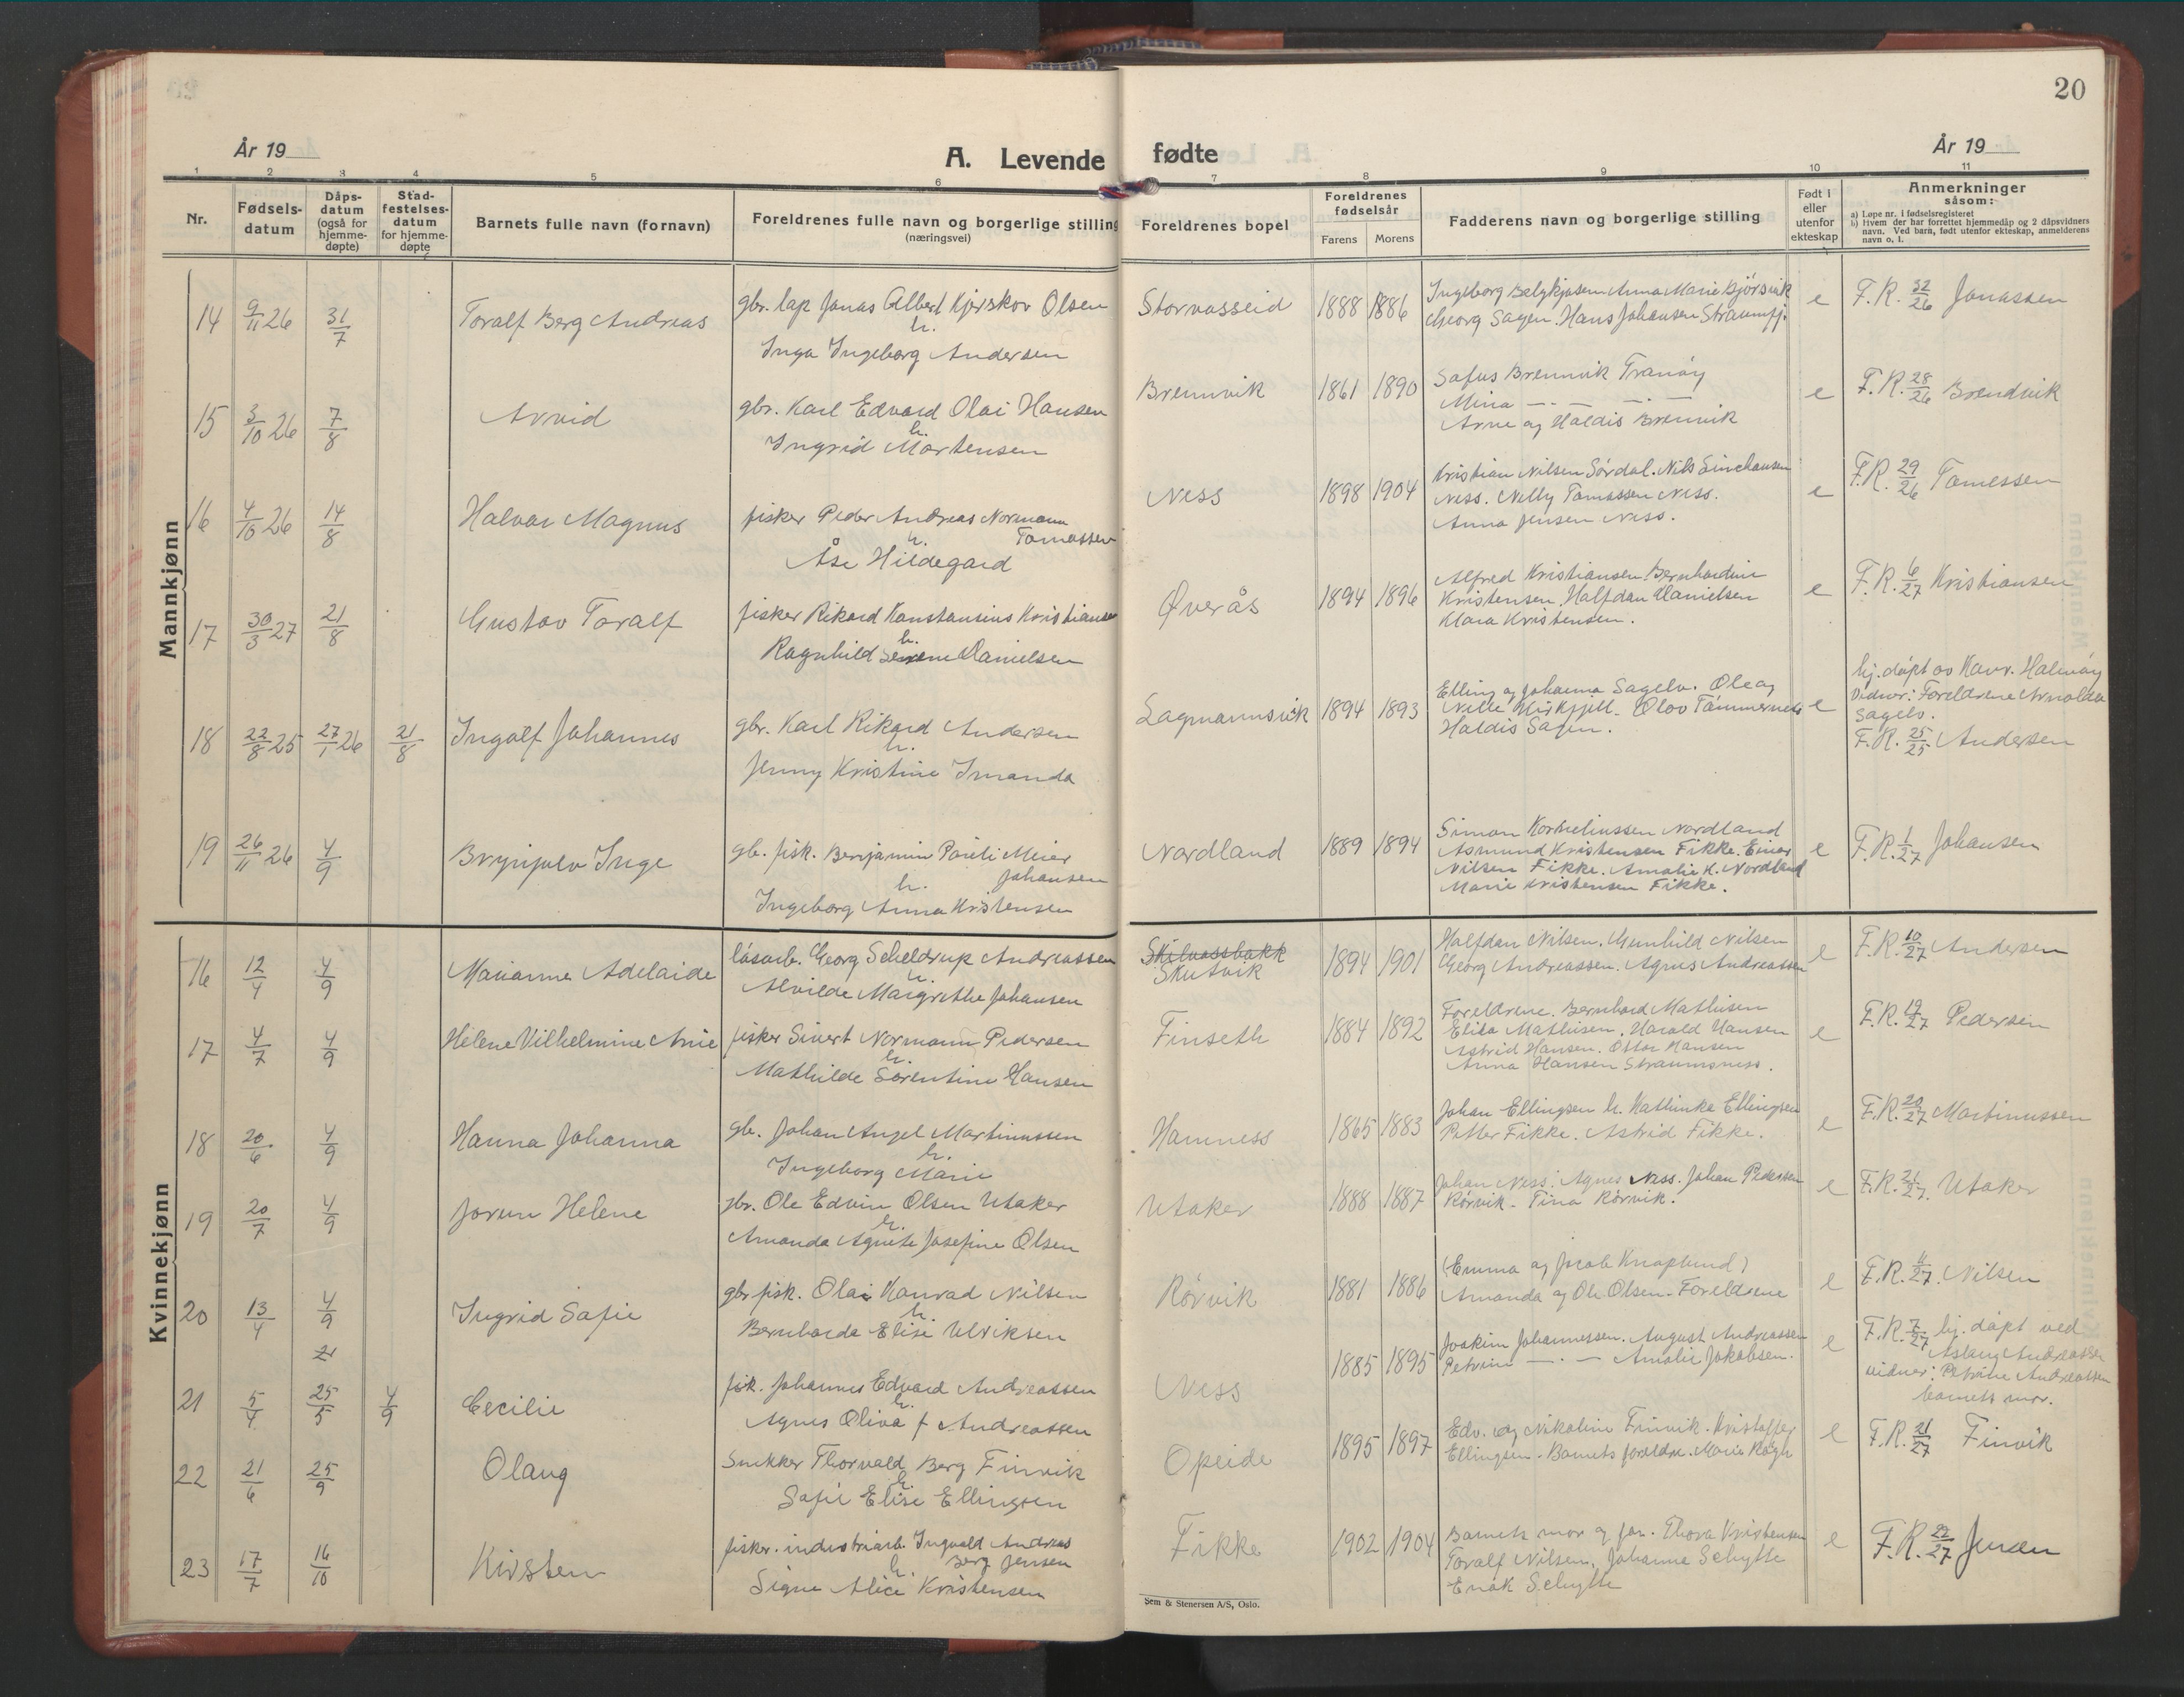 20
År 19
A. Levende fødte
År 19
1 2 3 4 5 6 7 8 9 10 11
Nr.
Fødsels-
datum
Dåps-
datum
(også for
hjemme-
døpte)
Stad-
festelses-
datum
for hjemme-
døpte
Barnets fulle navn (fornavn)
Foreldrenes fulle navn og borgerlige stilling
(næringsvei)
Foreldrenes bopel
Foreldrenes
fødselsår
Farens Morens
Fadderens navn og borgerlige stilling
Født i
eller
utenfor
ekteskap
Anmerkninger
såsom:
a) Løpe nr. i fødselsregisteret
b) Hvem der har forrettet hjemmedåp og 2 dåpsvidners
navn. Ved barn, født utenfor ekteskap, anmelderens
navn o. l.
Mannkjønn
14 9/11 26 31/7 Toralf Berg Andreas
gbr. lap Jonas Albert Kjerskov Olsen
h.
Inga Ingeborg Andersen
Storvasseid 1888 1886
Anna Marie Bjørsvik
Georg Sagen. Hans Johansen Straumfj.
e F.R. 32/26 Jonassen
15 3/10 26 7/8 Arvid
gbr. Karl Edvard Olai Hansen
h.
Ingrid Mortensen
Brennvik 1861 1890
Sofus Brennvik Tranøy
Mina — · — — · —
Arne og Haldis Brennvik
e F.R. 28/26 Brendvik
16 4/10 26 14/8 Halvar Magnus
fisker Peder Andreas Normann
Tomassen
h.
Åse Hildegard
Ness 1898 1904
Kristian Nilsen Sørdal. Nils
Ness. Nelly Tomassen Ness.
Anna Jensen Ness.
e F.R. 29/26 Tomessen
17 30/3 27 21/8 Gustav Toralf
fisker Rikard Konstansius Kristiansen
h.
Ragnhild Danielsen
Øverås 1894 1896
Alfred Kristiansen. Bernhardine
Kristensen. Halfdan Danielsen
Klara Kristensen.
e F.R. 6/27 Kristiansen
18 22/8 25 27/1 26 21/8 Ingolf Johannes
gbr. Karl Rikard Andersen
h.
Jenny Kristine Imanda
Lagmannsvik 1894 1893
Elling og Johanna Sagelv. Ole og
Nelle Kirkfjell. Olov Tømmernes
Haldis Sagen.
e
hj. døpt av Halmøy
Vidner: Foreldrene Arnolda
Sagelv.
F.R. 25/25 Andersen
19 26/11 26 4/9 Brynjulv Inge
gb. fisk. Benjamin Pareli Meier
Johansen
h.
Ingeborg Anna Kristensen
Nordland 1889 1894
Simon Korneliussen Nordland
Asmund Kristensen Fikke. Einar
Nilsen Fikke. Amalie K. Nordland
Marie Kristensen Fikke.
e F.R. 1/27 Johansen
Kvinnekjønn
16 12/4 4/9 Marianne Adelaide
løsarb. Georg Scheldrup Andreassen
h.
Alvilde Margrethe Johansen
Skilvassbakk
Skutvik 1894 1901
Halfdan Nilsen. Gunhild Nilsen
Georg Andreassen. Agnes Andreassen
e F.R. 10/27 Andersen
17 4/7 4/9 Helene Vilhelmine Anie
fisker Sivert Normann Pedersen
h.
Mathilde Sørentine Hansen
Finseth 1884 1892
Foreldrene. Bernhard Mathisen
Elida Mathisen. Harald Hansen
Astrid Hansen. Ottar Hansen
Anna Hansen Straumsness.
e F.R. 19/27 Pedersen
18 20/6 4/9 Hanna Johanna
gb. Johan Angel Martinussen
h.
Ingeborg Marie
Hamness 1865 1883
Johan Ellingsen h. Kathinka Ellingsen
Petter Fikke. Astrid Fikke.
e F.R. 20/27 Martinussen
19 20/7 4/9 Jorun Helene
gbr. Ole Edvin Olsen Utaker
h.
Amanda Agnete Josefine Olsen
Utaker 1888 1887
Johan Ness. Agnes Ness. Johan Pedersen
Rørvik. Tina Rørvik.
e F.R. 24/27. Utaker
20 13/4 4/9 Ingrid Sofie
gbr. fisk. Olai Konrad Nilsen
h.
Bernharda Elise Ulriksen
Rørvik 1881 1886
(Emma og Jacob Knaplund)
Amanda og Ole Olsen - Foreldrene
e F.R. 11/27. Nilsen
21 5/4 25/5 4/9 Cecilie
fisk. Johannes Edvard Andreassen
h.
Agnes Oliva f Andreassen
Ness 1885 1895
Joakim Johannessen. August Andreassen
Petrine — · — Amalie Jakobsen.
e F.R. 7/27 hj. døpt ved
Aslaug Andreassen
vidner: Petrine Andreassen
barnets mor.
22 21/6 25/9 Olaug
Snikker Thorvald Berg Finvik
h.
Sofie Elise Ellingsen
Opeide 1895 1897
Edv. og Nikoline Finvik. Kristoffer
Ellingsen. Barnets foreldre. Marie
e F.R. 21/27 Finvik
23 17/7 16/10 Kirsten
fisker. industriarb. Ingvald Andreas
Berg Jensen
h.
Signe Alice Kristensen
Fikke 1902 1904
Barnets mor og far. Thora Kristensen
Toralf Nilsen. Johanne Schytte
Enok Schytte
e F.R. 22/27 Jensen
Sem & Stenersen A/S, Oslo.